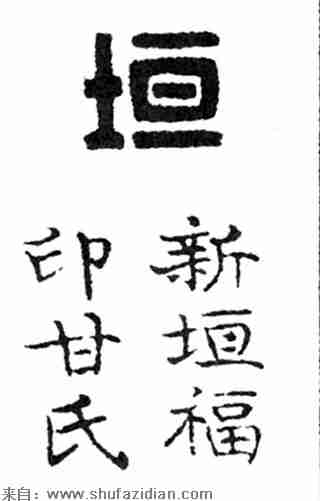 垣
新垣福
印甘氏
来自：www.shufazidian.com